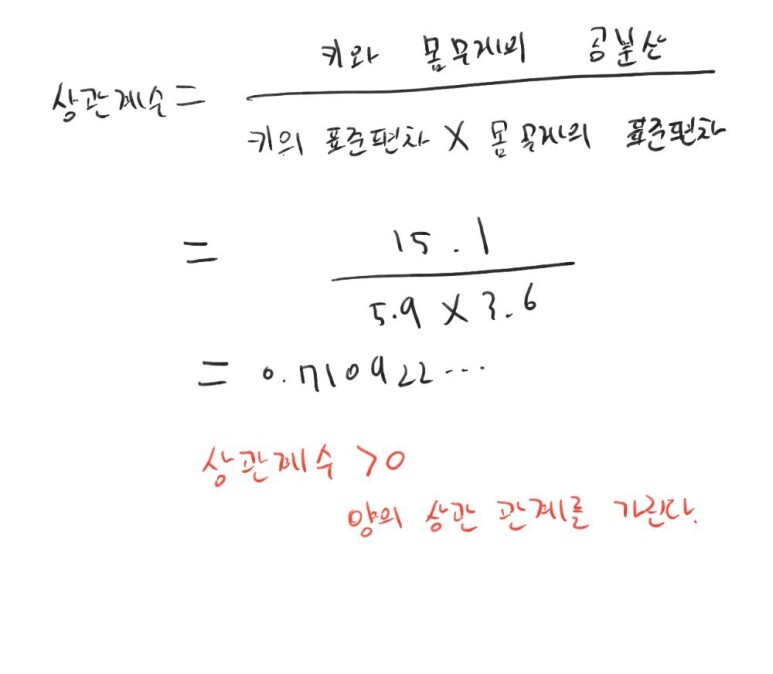 키와 몸무게의 공분산
상관계수 =
키의 표준편차 X 몸무게의 표준편차
= 15.1
5.9 X 3.6
= 0.710922...
상관계수 >0
양의 상관 관계를 가린다.